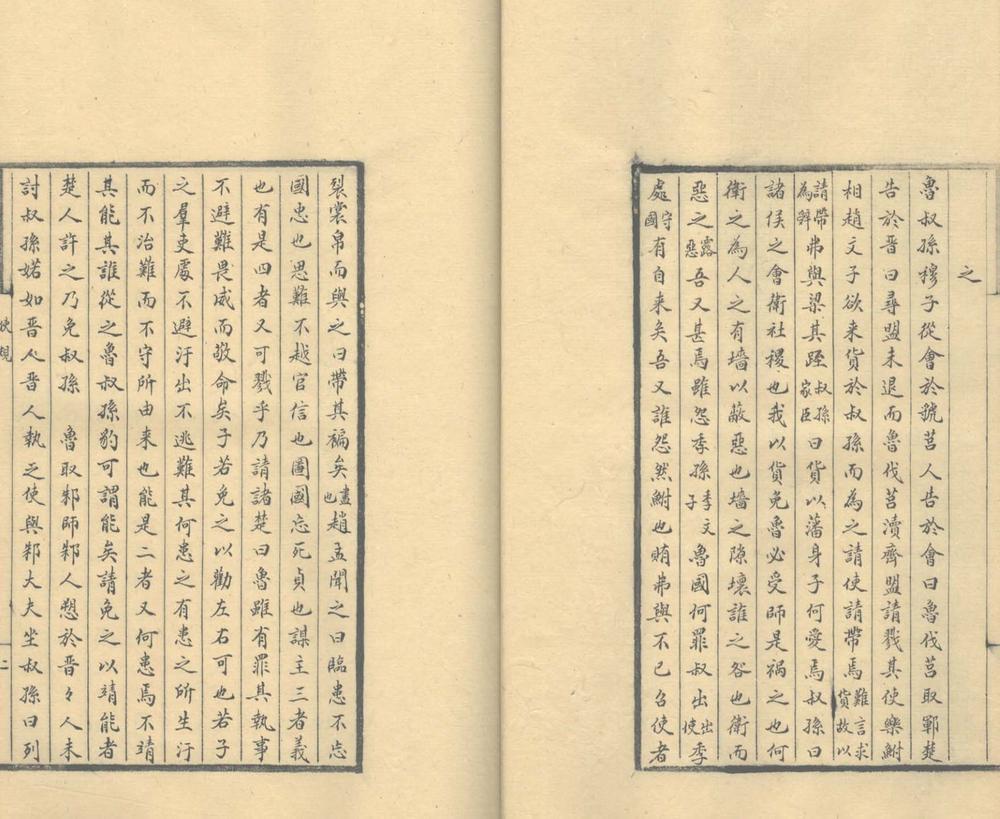 之
魯叔孫穆子從會於虢莒人告於會曰魯伐莒取鄆楚
告於晉曰尋盟未退而魯伐莒瀆齊盟請戮其使樂鮒
相趙文子欲來貨於叔孫而為之請使請帶焉難言求貨故以
請帶為辤弗與梁其踁叔孫家臣曰貨以藩身子何愛焉叔孫曰
諸侯之會衛社稷也我以貨免魯必受師是禍之也何
衛之為人之有墻以蔽惡也墻之隙壞誰之咎也衛而
惡之露惡吾又甚焉雖怨季孫季文子魯國何罪叔出出使季
處守國有自来矣吾又誰怨然鮒也賄弗與不已召使者
裂裳帛而與之曰帶其褊矣盡也趙孟聞之曰臨患不忘
國忠也思難不越官信也圖國忘死貞也謀主三者義
也有是四者又可戮乎乃請諸楚曰魯雖有罪其執事
不避難畏威而敬命矣子若免之以勸左右可也若子
之羣吏處不避汙出不逃難其何患之有患之所生汙
而不治難而不守所由来也能是二者又何患焉不靖
其能其誰從之魯叔孫豹可謂能矣請免之以靖能者
楚人許之乃免叔孫 魯取邾師邾人愬於晉々人来
討叔孫婼如晉人晉人執之使與邾大夫坐叔孫曰列
二